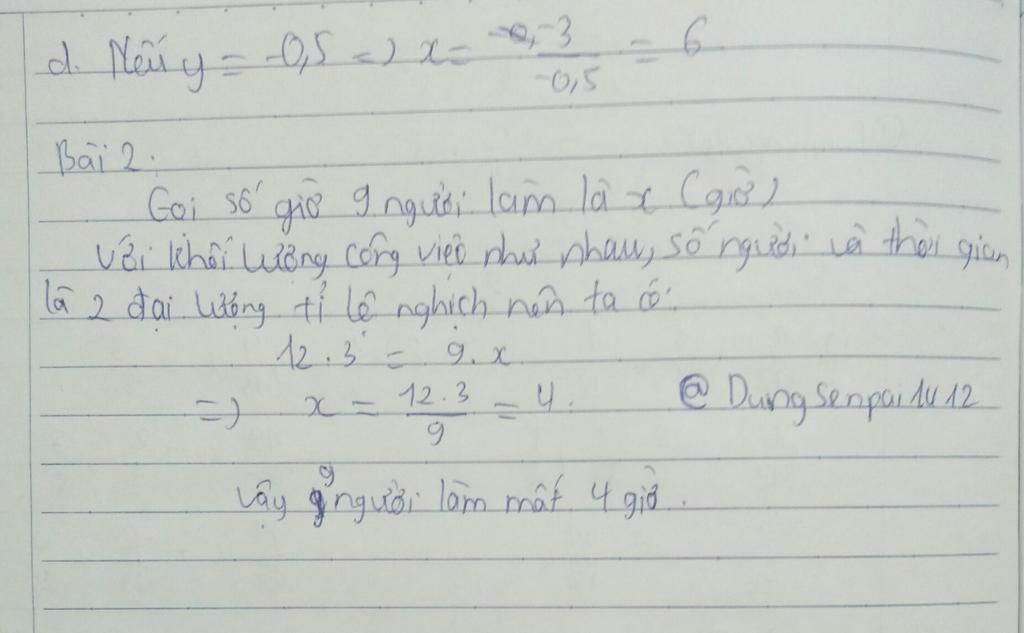 d. Nếu y = -0,5 => x = -3 / -0,5 = 6
Bài 2.
Gọi số giờ 9 người làm là x (giờ)
Với khối lượng công việc như nhau, số người và thời gian
là 2 đại lượng tỉ lệ nghịch nên ta có:
12.3 = 9.x
=> x = 12.3 / 9 = 4. @Dungsenpai1412
Vậy 9 người làm mất 4 giờ.